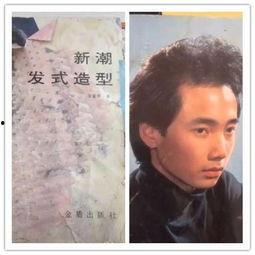 新潮
发式造型
金盾出版社